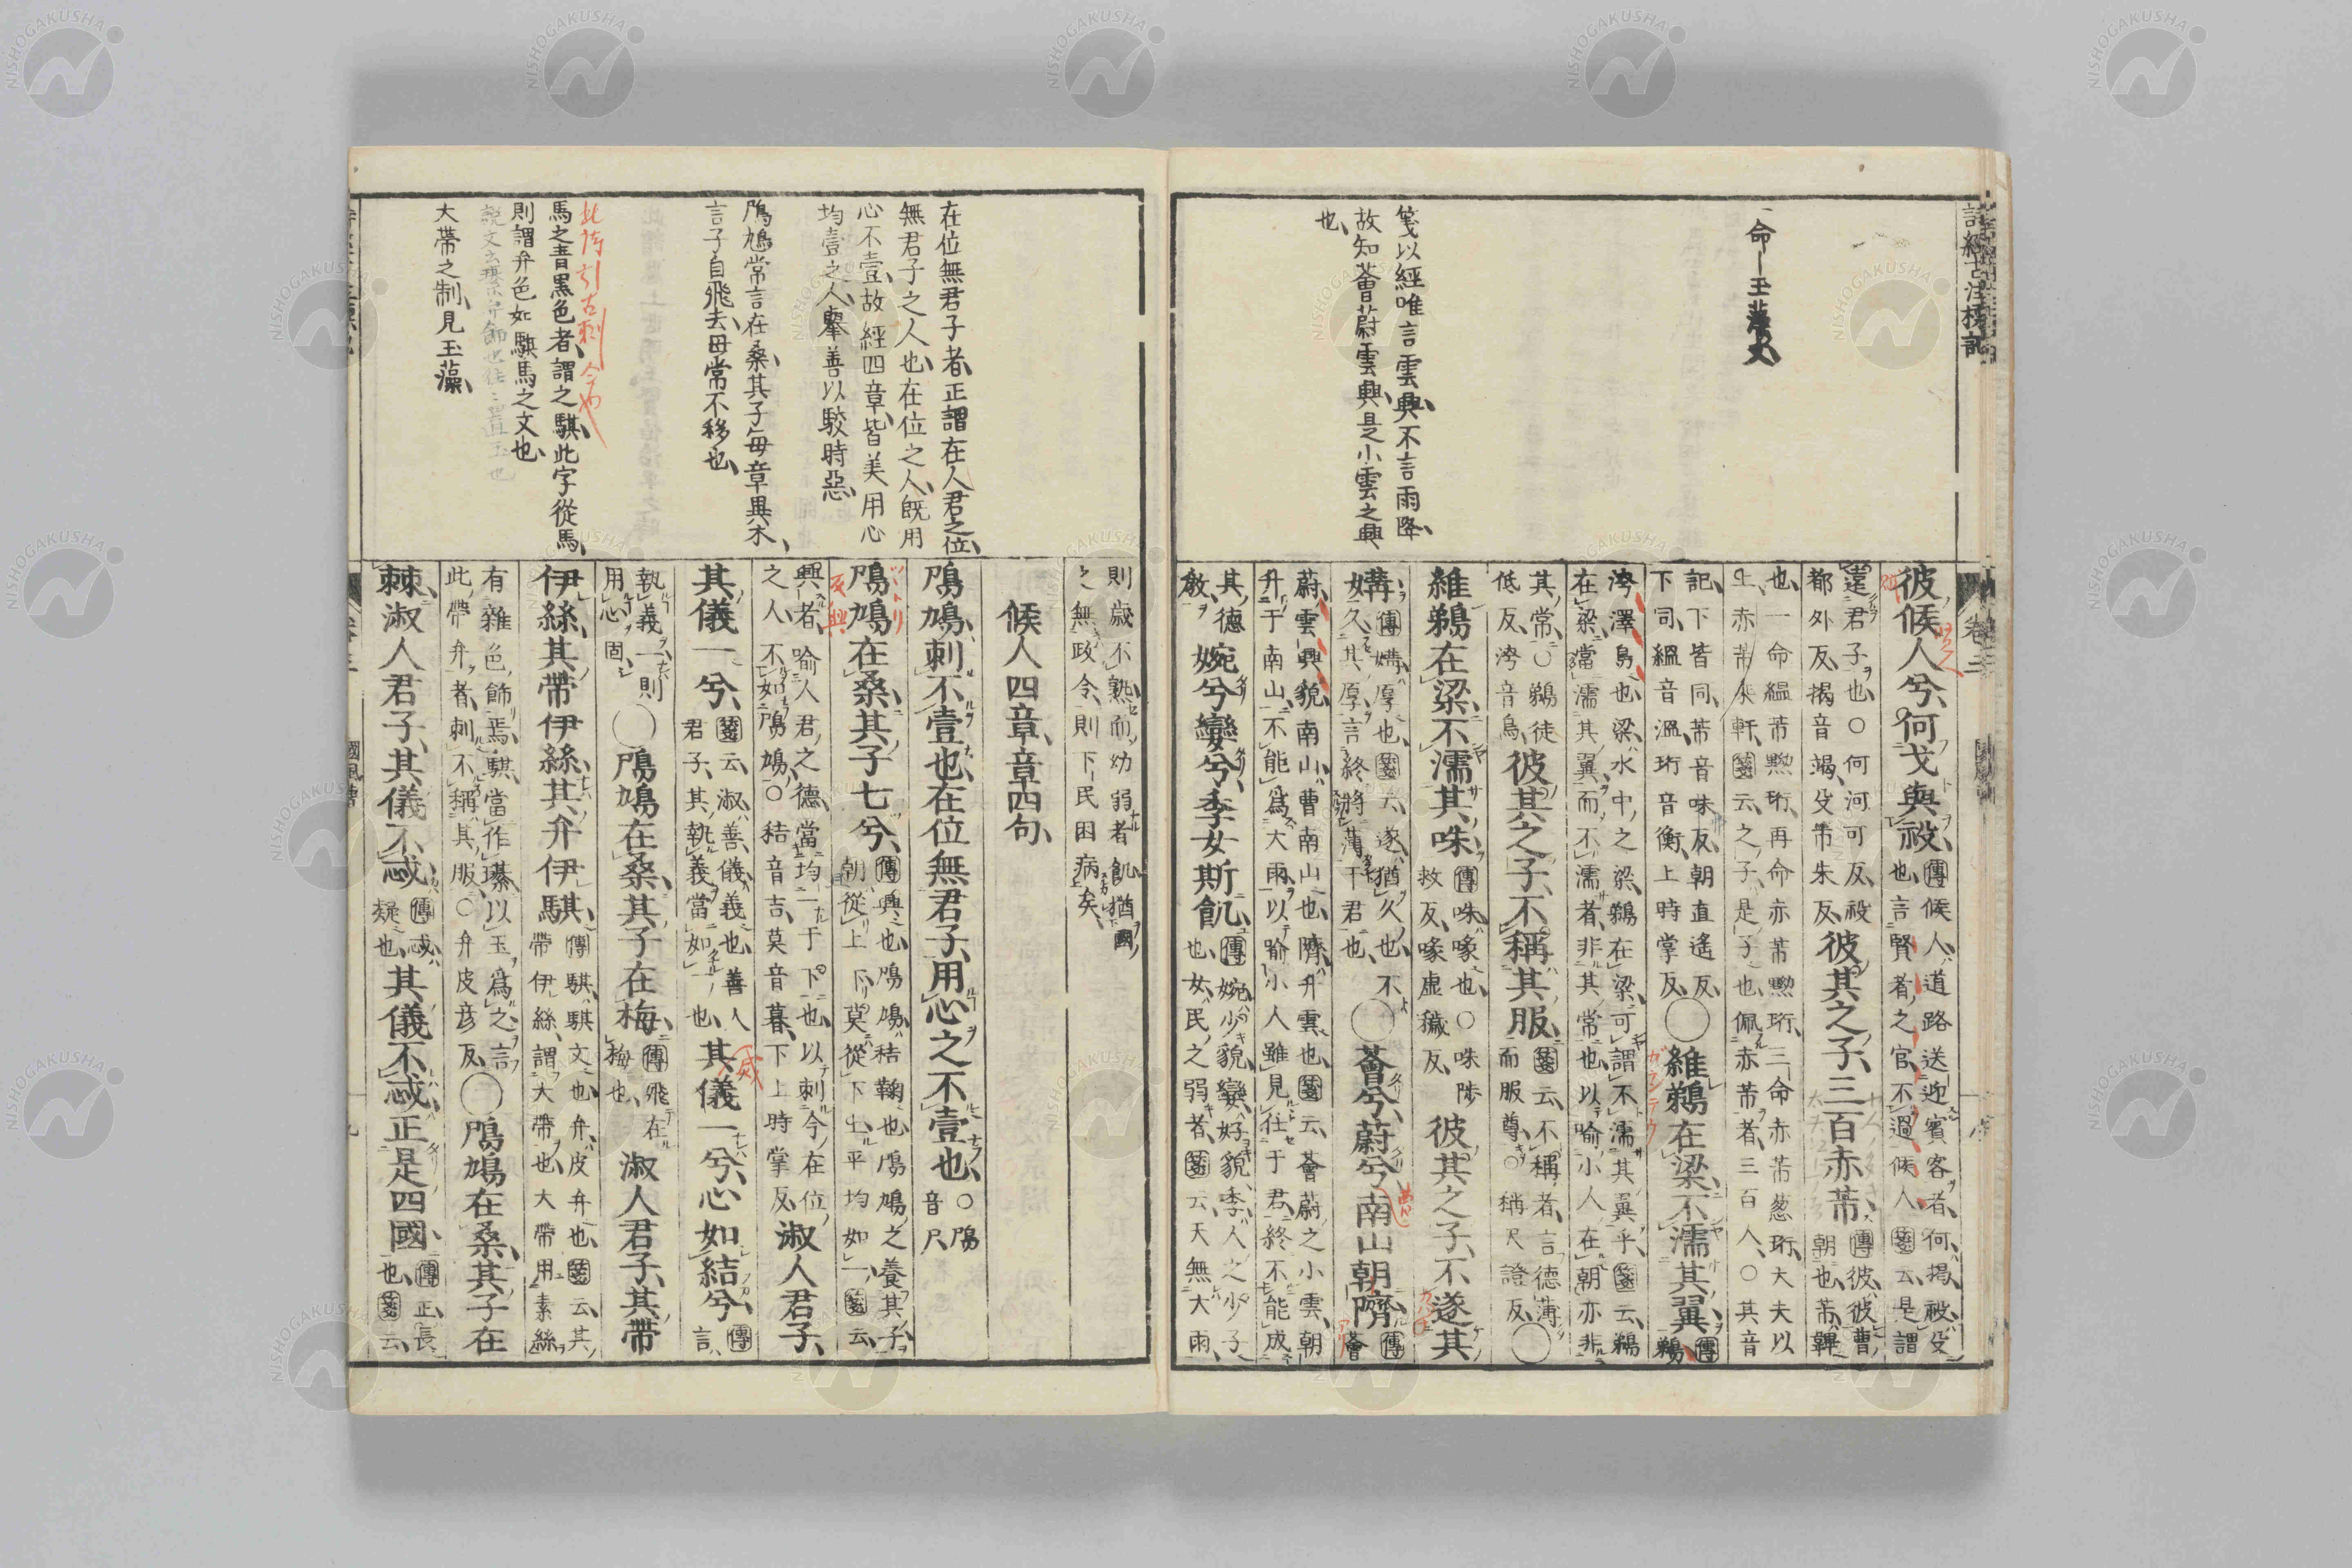 詩經古注標記
一命—玉藻文
箋以經唯言雲興不言雨降、
故知薈蔚雲興是小雲之興
也、
彼候人兮、何戈與祋、傳候人、道路送迎賓客者、何、揭、祋、殳
也、言賢者之官、不過候人、箋云是謂
遠君子也、○何何可反、祋
都外反、揭音竭、殳市朱反、彼其之子、三百赤芾、傳彼、彼曹
朝也、芾、韠
也、一命縕芾黝珩、再命赤芾黝珩、三命赤芾葱珩、大夫以
上、赤芾乘軒、箋云、之子、是子也、佩赤芾者、三百人、○其音
記、下皆同、芾音味反、朝直遙反、
下同、縕音溫、珩音衡、上時掌反、○維鵜在梁、不濡其翼、傳
鵜、
洿澤鳥也、梁、水中之梁、鵜在梁、可謂不濡其翼乎、箋云、鵜
在梁、當濡其翼、而不濡者、非其常也、以喻小人在朝、亦非
其常、○鵜徒
低反、洿音烏、彼其之子、不稱其服、箋云、不稱者、言德薄
而服尊、○稱尺證反、○
維鵜在梁、不濡其咮、傳咮、喙也、○咮陟
救反、喙虛穢反、彼其之子、不遂其
媾、傳媾、厚也、箋云、遂、猶久也、不
久其厚、言終將薄于君也、○薈兮蔚兮、南山朝隮、傳
薈
蔚、雲興貌、南山、曹南山也、隮、升雲也、箋云、薈蔚之小雲、朝
升于南山、不能爲大雨、以喻小人雖見任于君、終不能成
其德
敎、婉兮孌兮、季女斯飢、傳婉、少貌、孌、好貌、季、人之少子
也、女、民之弱者、箋云、天無大雨、
則歲不熟、而幼弱者飢、猶國
之無政令、則下民困病矣、
候人四章、章四句、
鳲鳩、刺不壹也、在位無君子、用心之不壹也、○鳲
音尸
鳲鳩在桑、其子七兮、傳興也、鳲鳩、秸鞠也、鳲鳩之養其子、
朝從上下、莫從下上、平均如一、箋云、
興者、喻人君之德、當均一于下也、以刺今在位
之人、不如鳲鳩、○秸音吉、莫音暮、下上時掌反、淑人君子、
其儀一兮、箋云、淑、善、儀、義也、善人
君子、其執義當如一也、其儀一兮、心如結兮、傳
言、
執義一、則
用心固、○鳲鳩在桑、其子在梅、傳飛在
梅也、淑人君子、其帶
伊絲、其帶伊絲、其弁伊騏、傳騏、騏文也、弁、皮弁也、箋云、其
帶伊絲、謂大帶也、大帶用素絲、
有雜色飾焉、騏當作璂、以玉爲之、言
此帶弁者、刺不稱其服、○弁皮彦反、○鳲鳩在桑、其子在
棘、淑人君子、其儀不忒、傳忒、
疑也、其儀不忒、正是四國、傳正、長
也、箋云、
在位無君子者、正謂在人君之位、
無君子之人也、在位之人、旣用
心不壹、故經四章、皆美用心
均壹之人、擧善以駁時惡、
鳲鳩常言在桑、其子每章異木、
言子自飛去、母常不移也、
馬之青黑色者、謂之騏、此字從馬、
則謂弁色如騏馬之文也、
大帶之制、見玉藻、